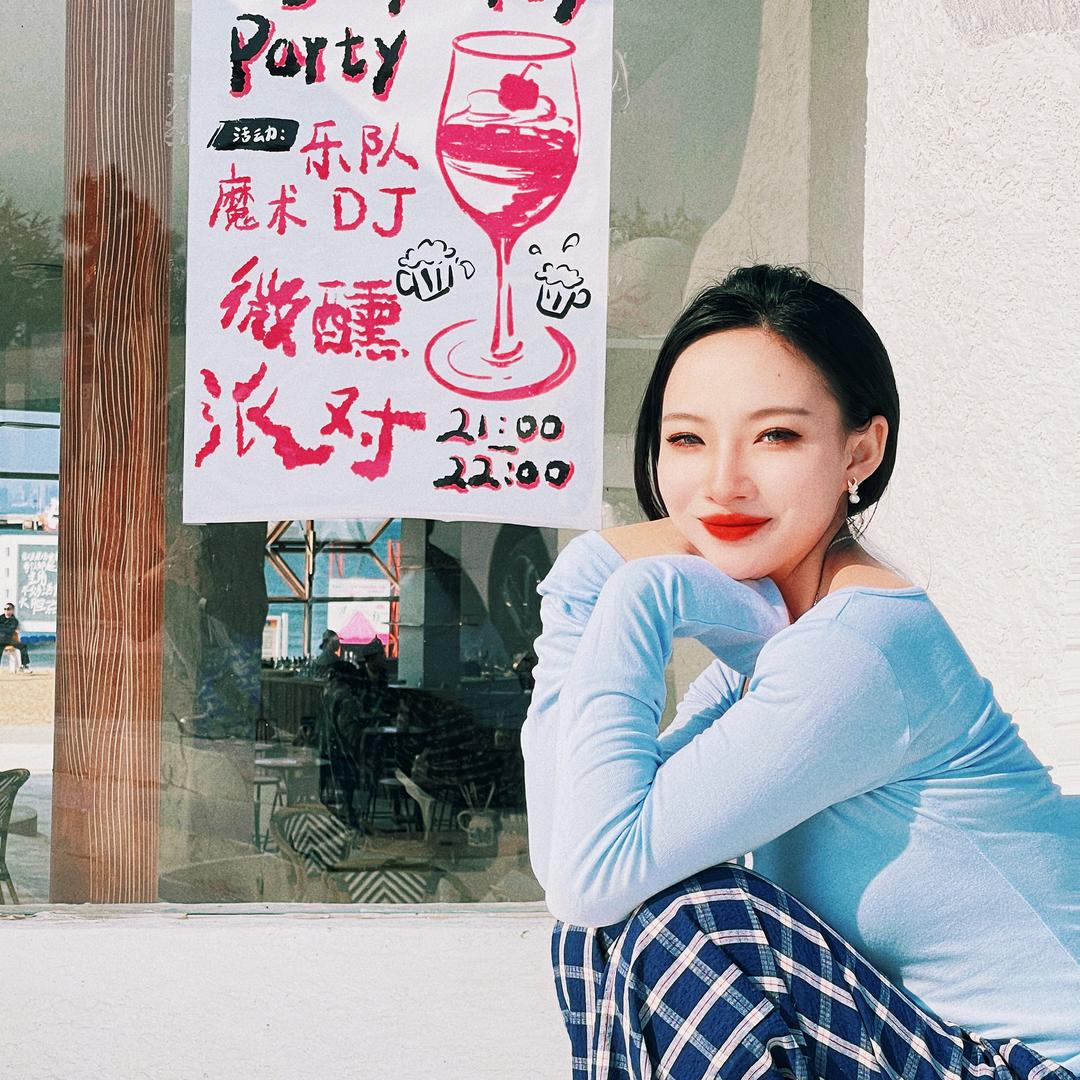 Party
活动:
乐队
魔术 DJ
微醺
派对
21:00
22:00